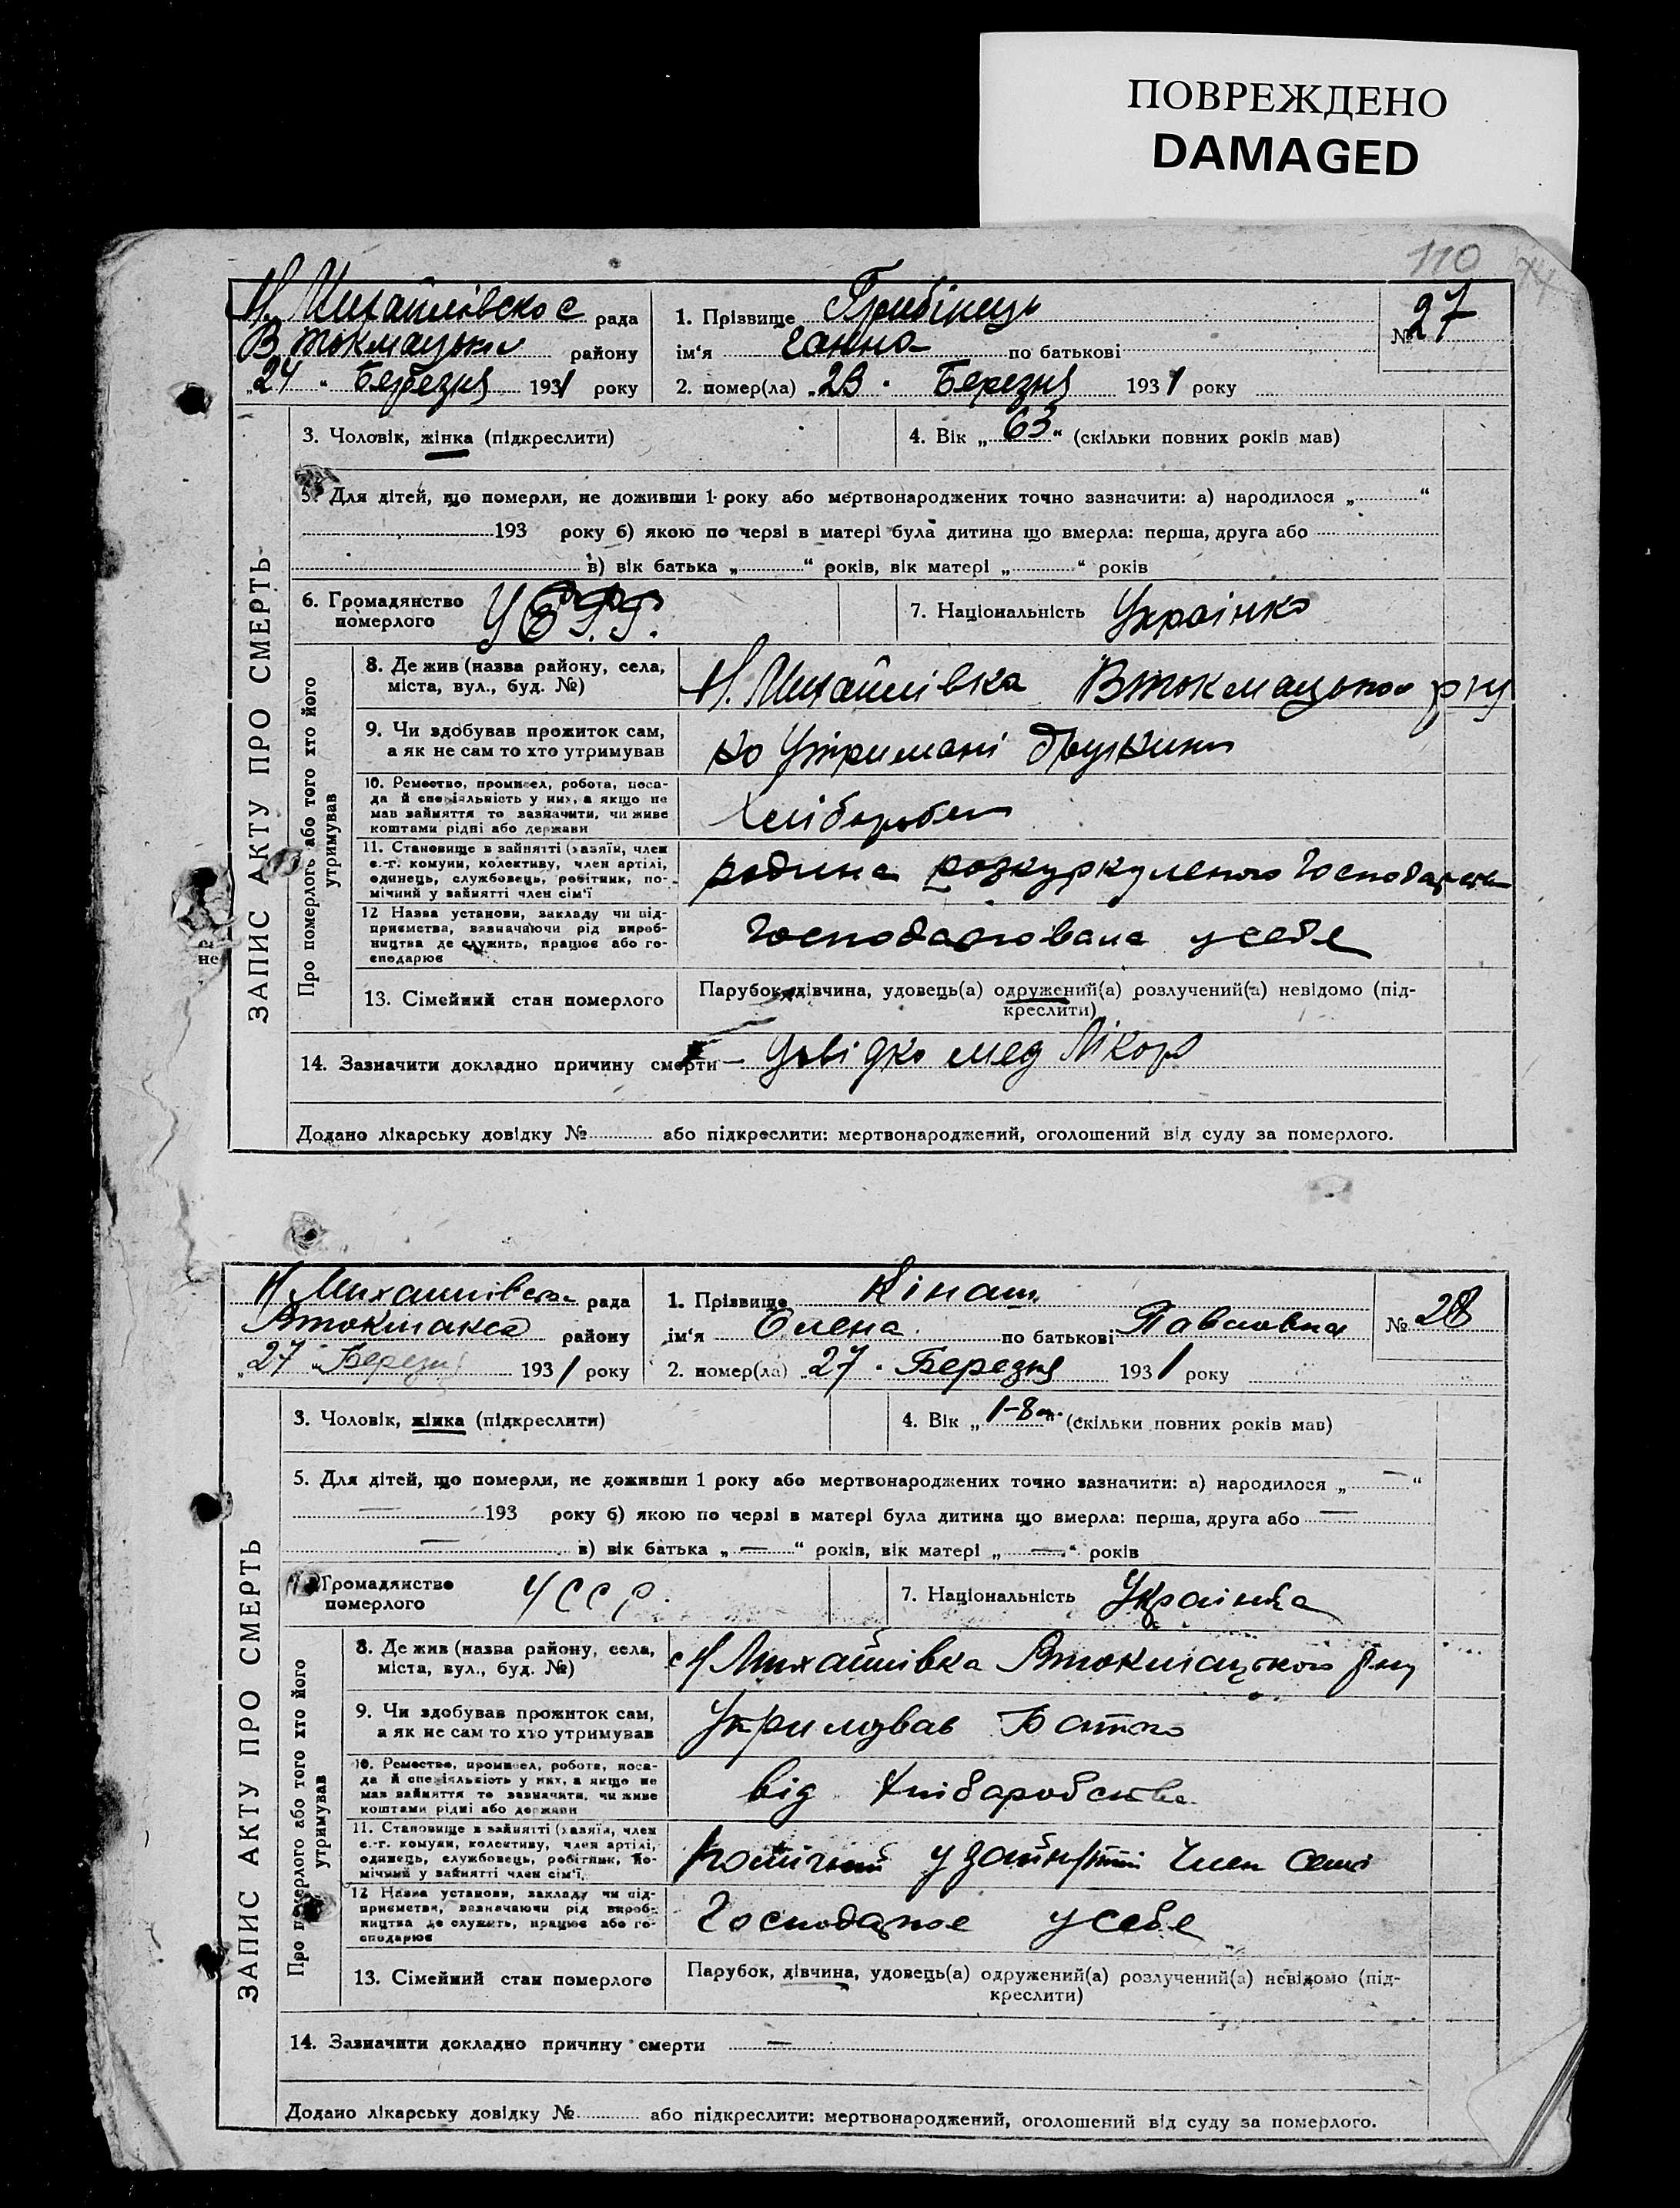 ПОВРЕЖДЕНО
DAMAGED
110
Н. Михайлівское рада
В Токмацьки району
„24 " Березня 1931 року
1. Прізвище Грибінець
ім'я Ганна по батькові
№ 27
2. помер(ла) „23 " Березня 1931 року
3. Чоловік, жінка (підкреслити)
4. Вік „ 63 " (скільки повних років мав)
5. Для дітей, що померли, не доживши 1 року або мертвонароджених точно зазначити: а) народилося „ "
193 року б) якою по черзі в матері була дитина що вмерла: перша, друга або
в) вік батька „ " років, вік матері „ " років
6. Громадянство
померлого
7. Національність Українка
ЗАПИС АКТУ ПРО СМЕРТЬ
Про померлого або того хто його
утримував
8. Де жив (назва району, села,
міста, вул., буд. №)
Н. Михайлівка Втокмацького рну
9. Чи здобував прожиток сам,
а як не сам то хто утримував
на утримані
10. Ремество, промисел, робота, поса-
да й спеціяльність у них, а якщо не
мав зайняття то зазначити, чи живе
коштами рідні або держави
11. Становище в зайнятті (хазяїн, член
с.-г. комуни, колективу, член артілі,
одинець, службовець, робітник, по-
мічний у зайнятті член сім'ї
родина розкуркуленого господарства
12 Назва установи, закладу чи під-
приємства, зазначаючи рід вироб-
ництва де служить, працює або го-
сподарює
господарювала у себе
13. Сімейний стан померлого
Парубок, дівчина, удовець(а) одружений(а) розлучений(а) невідомо (під-
креслити)
14. Зазначити докладно причину смерти
Додано лікарську довідку № або підкреслити: мертвонароджений, оголошений від суду за померлого.
Н Михайлівська рада
Втокмакса району
„27 „ Березня 1931 року
1. Прізвище Кінаш
ім'я Олена по батькові Павловна
№ 28
2. помер(ла) „27 " Березня 1931 року
3. Чоловік, жінка (підкреслити)
4. Вік „ 1-8м. " (скільки повних років мав)
5. Для дітей, що померли, не доживши 1 року або мертвонароджених точно зазначити: а) народилося „ — "
— 193 року б) якою по черзі в матері була дитина що вмерла: перша, друга або —
— в) вік батька „ — " років, вік матері „ — " років
Громадянство
померлого
УССР.
7. Національність Українка
ЗАПИС АКТУ ПРО СМЕРТЬ
Про померлого або того хто його
утримував
8. Де жив (назва району, села,
міста, вул., буд. №)
с Н Михайлівка Втокмацького рну
9. Чи здобував прожиток сам,
а як не сам то хто утримував
Утримував Батько
10. Ремество, промисел, робота, поса-
да й спеціяльність у них, а якщо не
мав зайняття то зазначити, чи живе
коштами рідні або держави
від хліборобства
11. Становище в зайнятті (хазяїн, член
с.-г. комуни, колективу, член артілі,
одинець, службовець, робітник, по-
мічний у зайнятті член сім'ї,
помічний у зайнятті член семі
12 Назва установи, закладу чи під-
приємства, зазначаючи рід вироб-
ництва де служить, працює або го-
сподарює
Господарює у себе
13. Сімейний стан померлого
Парубок, дівчина, удовець(а) одружений(а) розлучений(а) невідомо (під-
креслити)
14. Зазначити докладно причину смерти —
Додано лікарську довідку № або підкреслити: мертвонароджений, оголошений від суду за померлого.